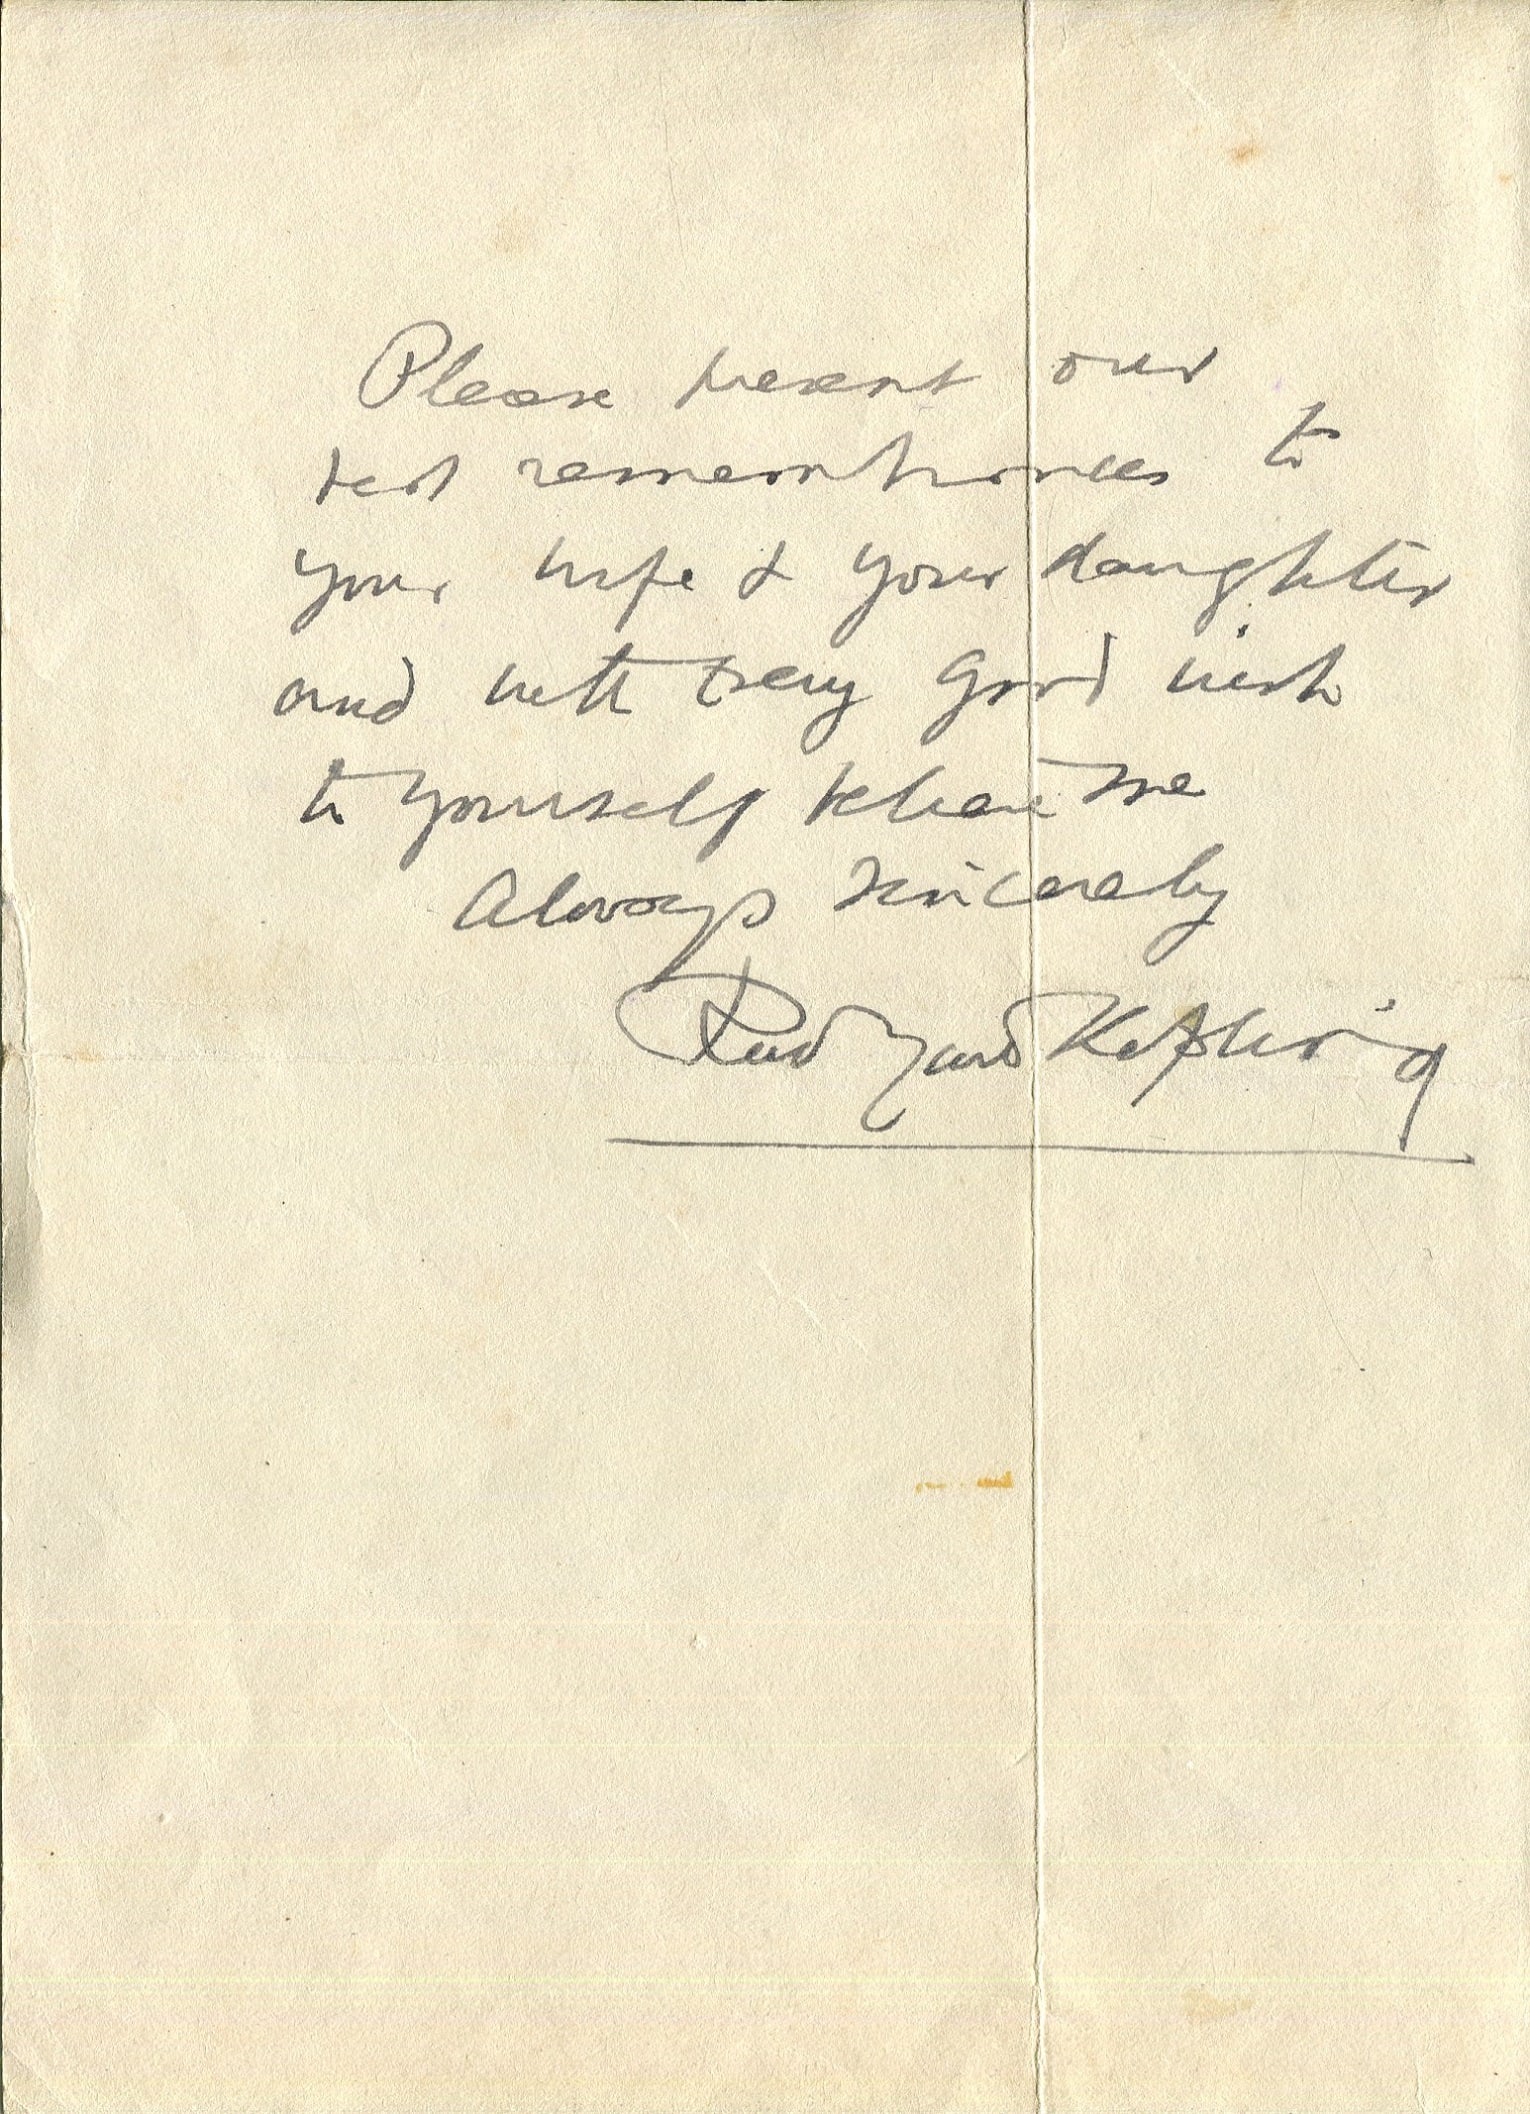 Please present our
best remembrances to
your wife & your daughter
and with every good wish
to yourself believe me
Always sincerely
Rudyard Kipling